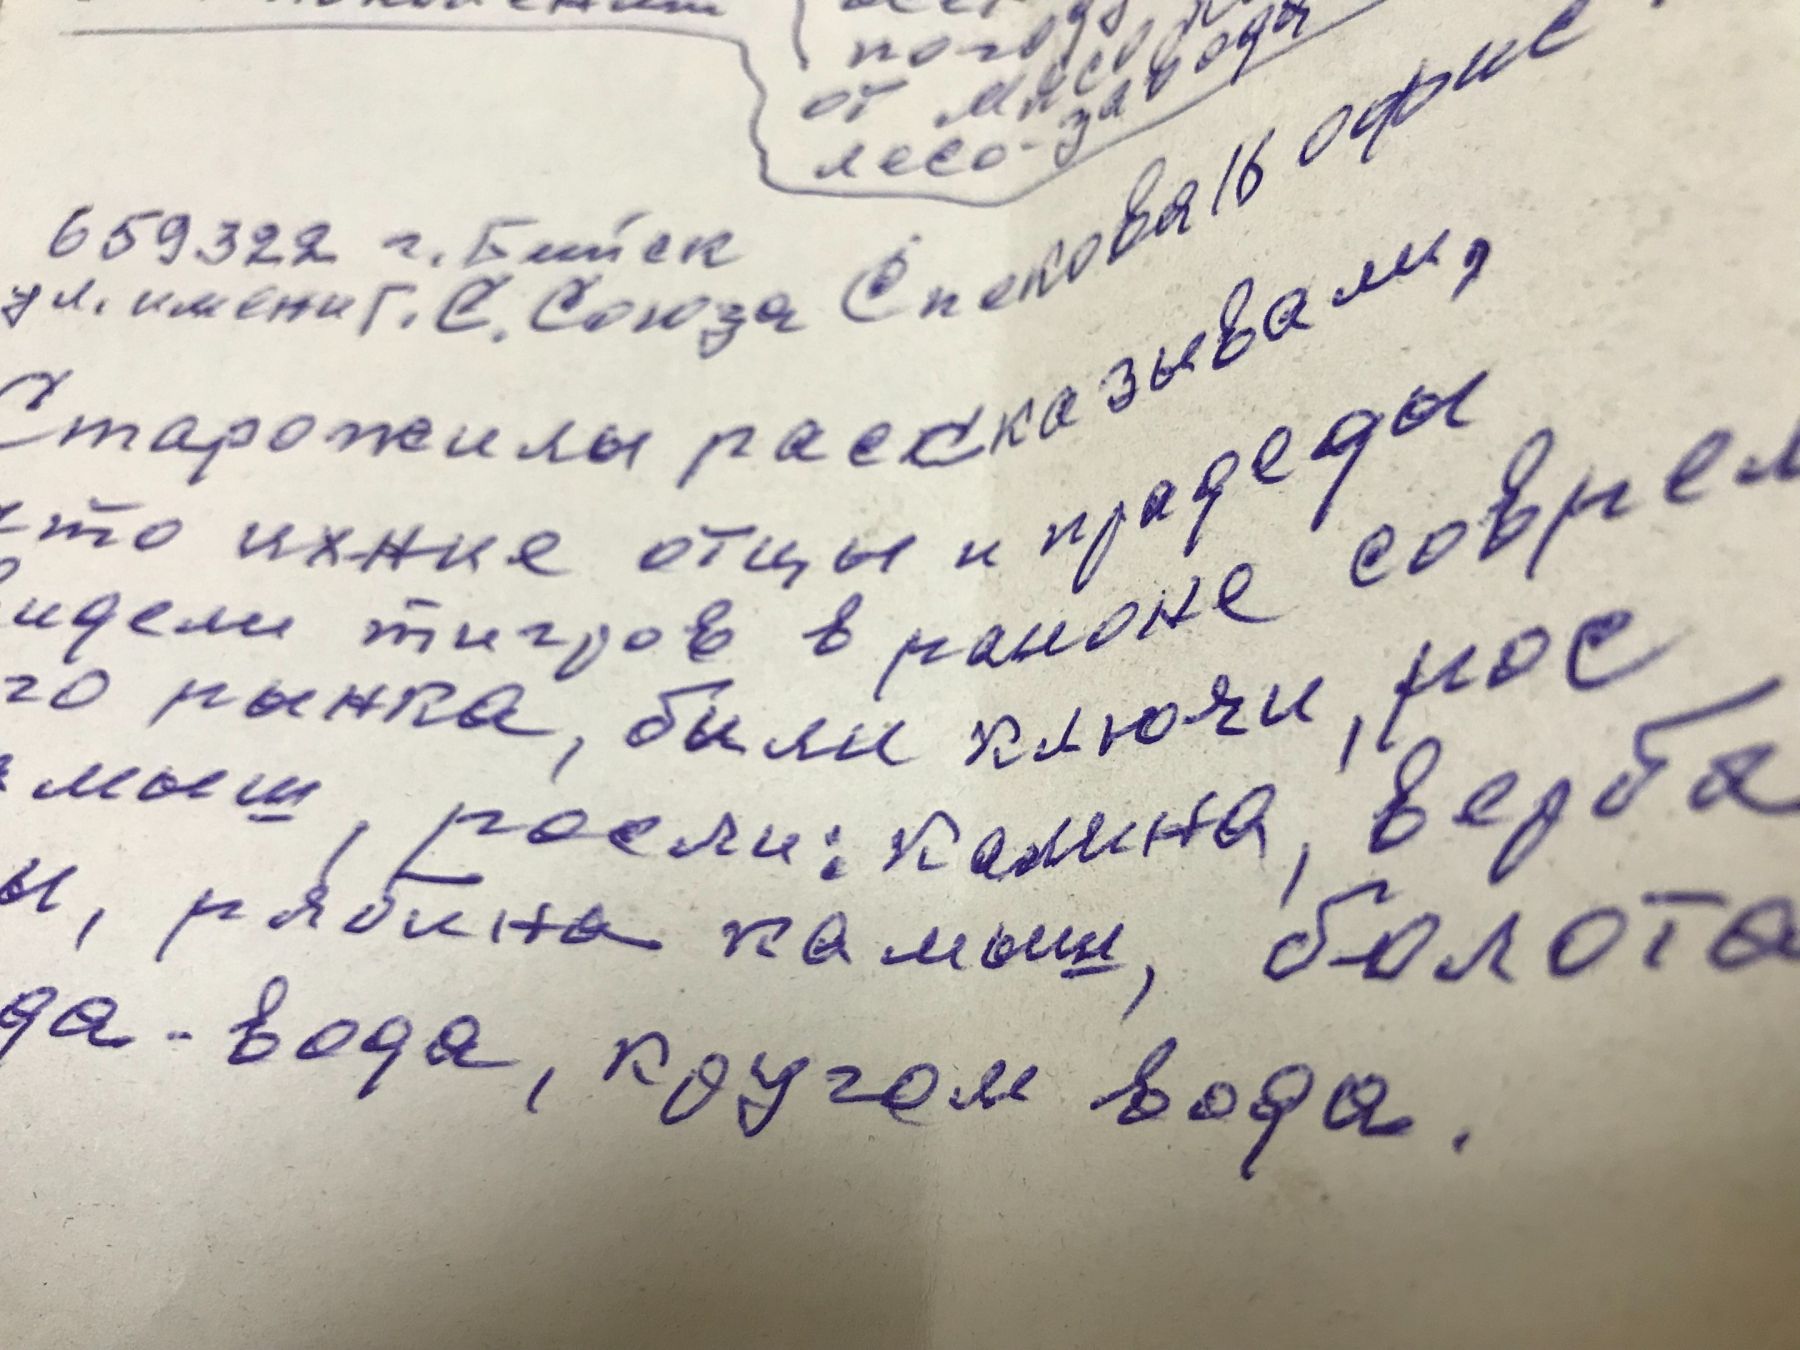 погод
от мясо
лесо-завода
659322 г. Бийск
ул. имени Г.С. Союза Спекова 16 офис
Старожилы рассказывали,
что ихние отцы и прадеды
видели тигров в районе соврем
го рынка, были ключи, рос
мыш, росли: калина, верба
ы, рябина камыш, болота
да-вода, кругом вода.